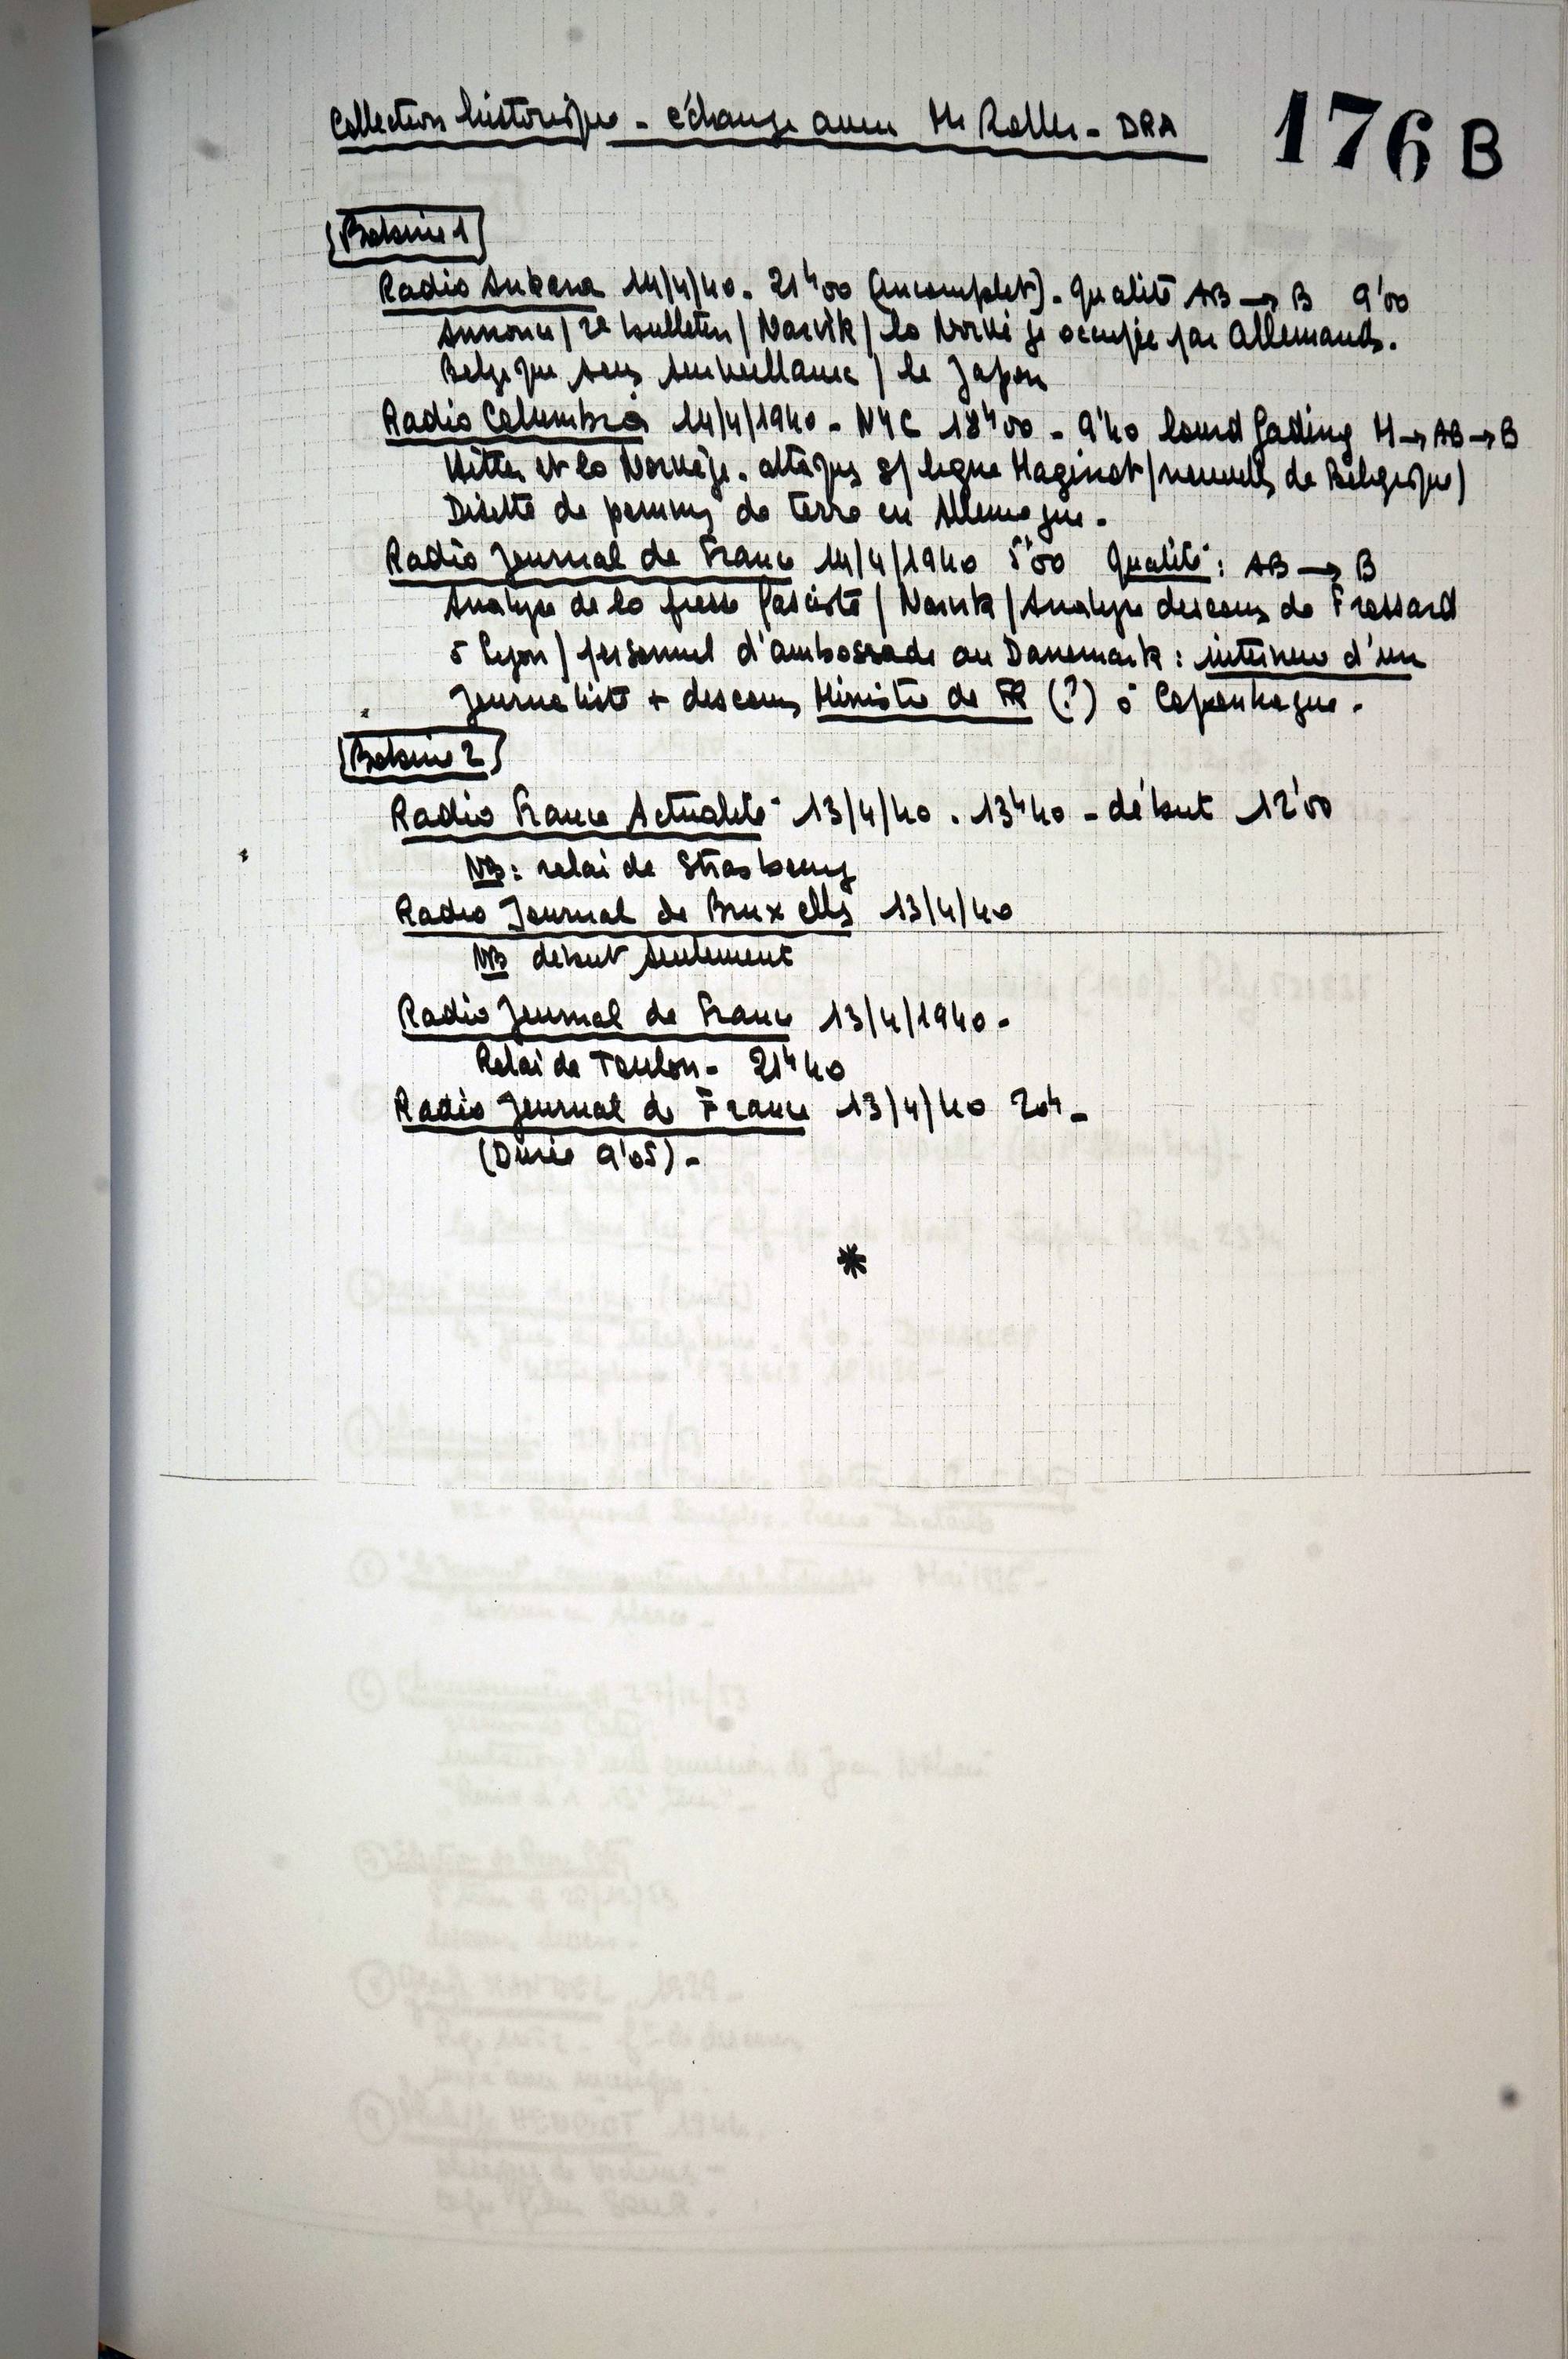 Collection historique - échange avec Mr Roller - DRA 176 B
Bobine 1
Radio Ankara 14/4/40. 21h00 (incomplet). Qualité AB → B 9'00
Annonce / 2e bulletin / Narvik / la Norvège occupée par Allemands.
Belgique sous surveillance / le Japon
Radio Columbia 14/4/1940 - NYC 18h00 - 9'40 lourd fading M → AB → B
Hitler et la Norvège. attaques s/ ligne Maginot / nouvelles de Belgique /
Disette de pommes de terre en Allemagne.
Radio Journal de France 14/4/1940 5'00 Qualité : AB → B
Analyse de la presse fasciste / Narvik / Analyse discours de Frossard
à Lyon / personnel d'ambassade au Danemark : interview d'un
journaliste + discours Ministre de FR (?) à Copenhague.
Bobine 2
Radio France Actualité 13/4/40 . 13h40 - début 12'00
NB : relai de Strasbourg
Radio Journal de Bruxelles 13/4/40
NB début seulement
Radio Journal de France 13/4/1940 -
Relai de Toulon - 21h40
Radio Journal de France 13/4/40 20h -
(Durée 9'05) -
*